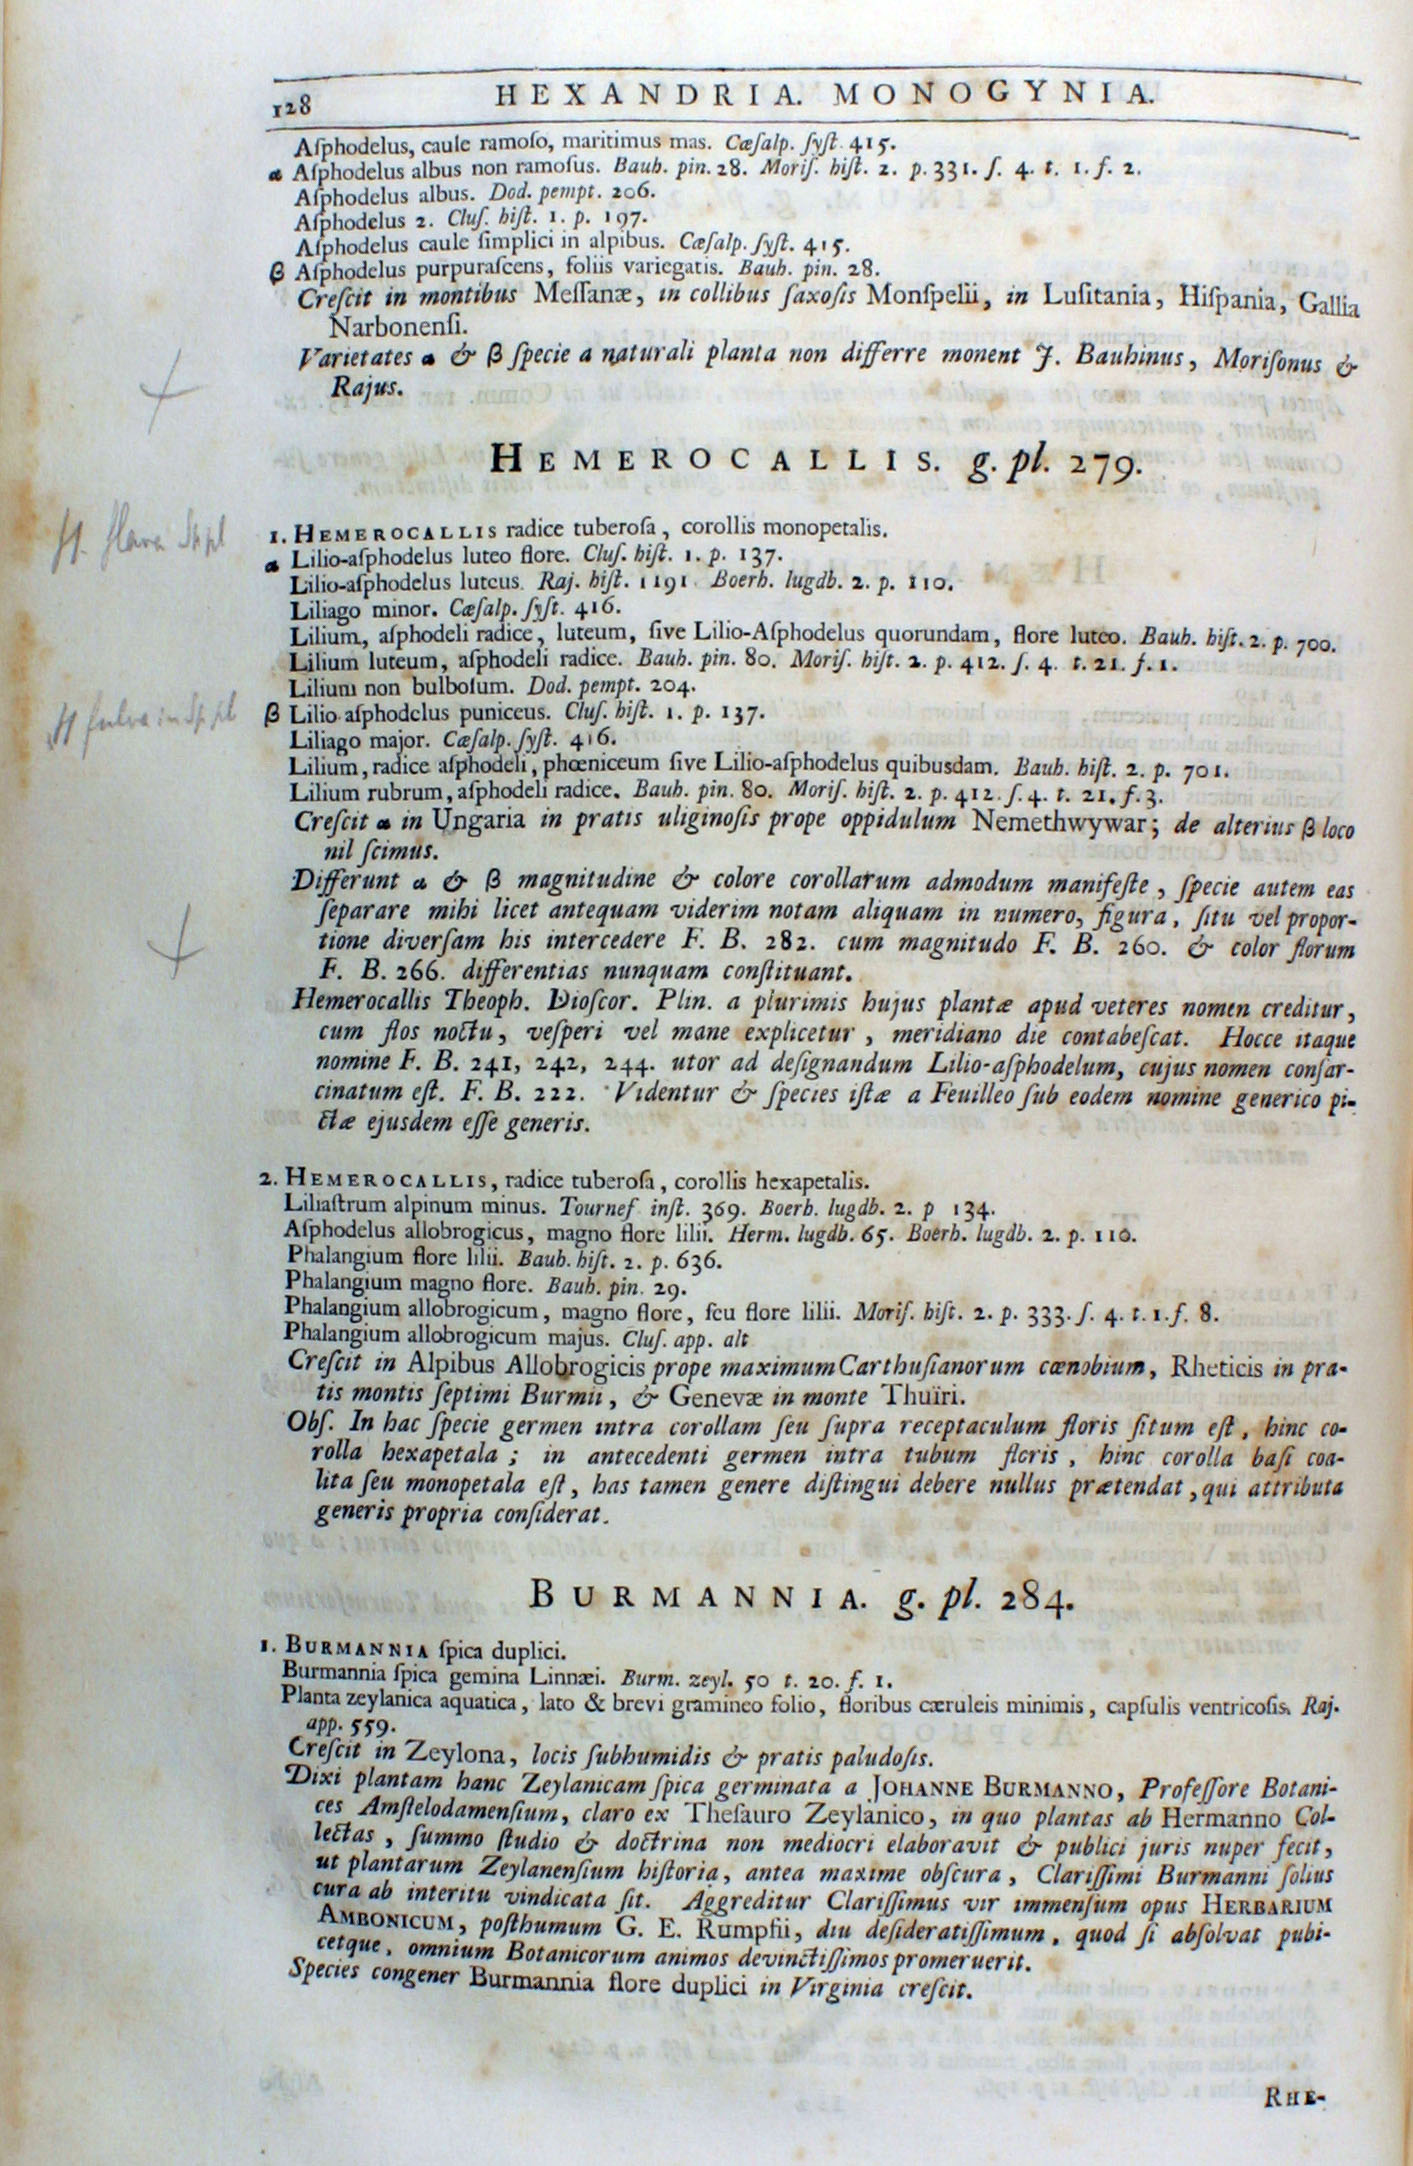 128 HEXANDRIA. MONOGYNIA.
Aſphodelus, caule ramoſo, maritimus mas. Cæſalp. ſyſt. 415.
α Aſphodelus albus non ramoſus. Bauh. pin. 28. Moriſ. hiſt. 2. p. 331. ſ. 4. t. 1. f. 2.
Aſphodelus albus. Dod. pempt. 206.
Aſphodelus 2. Cluſ. hiſt. 1. p. 197.
Aſphodelus caule ſimplici in alpibus. Cæſalp. ſyſt. 415.
β Aſphodelus purpuraſcens, foliis variegatis. Bauh. pin. 28.
Creſcit in montibus Meſſanæ, in collibus ſaxoſis Monſpelii, in Luſitania, Hiſpania, Gallia
Narbonenſi.
Varietates α & β ſpecie a naturali planta non differre monent J. Bauhinus, Moriſonus &
Rajus.
HEMEROCALLIS. g. pl. 279.
1. HEMEROCALLIS radice tuberoſa, corollis monopetalis.
H. flava Sp pl
α Lilio-aſphodelus luteo flore. Cluſ. hiſt. 1. p. 137.
Lilio-aſphodelus luteus. Raj. hiſt. 1191. Boerh. lugdb. 2. p. 110.
Liliago minor. Cæſalp. ſyſt. 416.
Lilium, aſphodeli radice, luteum, ſive Lilio-Aſphodelus quorundam, flore luteo. Bauh. hiſt. 2. p. 700.
Lilium luteum, aſphodeli radice. Bauh. pin. 80. Moriſ. hiſt. 2. p. 412. ſ. 4. t. 21. f. 1.
Lilium non bulboſum. Dod. pempt. 204.
H fulva in Sp pl
β Lilio-aſphodelus puniceus. Cluſ. hiſt. 1. p. 137.
Liliago major. Cæſalp. ſyſt. 416.
Lilium, radice aſphodeli, phœniceum ſive Lilio-aſphodelus quibusdam. Bauh. hiſt. 2. p. 701.
Lilium rubrum, aſphodeli radice. Bauh. pin. 80. Moriſ. hiſt. 2. p. 412. ſ. 4. t. 21. f. 3.
Creſcit α in Ungaria in pratis uliginoſis prope oppidulum Nemethwywar; de alterius β loco
nil ſcimus.
Differunt α & β magnitudine & colore corollarum admodum manifeſte, ſpecie autem eas
ſeparare mihi licet antequam viderim notam aliquam in numero, figura, ſitu vel propor-
tione diverſam his intercedere F. B. 282. cum magnitudo F. B. 260. & color florum
F. B. 266. differentias nunquam conſtituant.
Hemerocallis Theoph. Dioſcor. Plin. a plurimis hujus plantæ apud veteres nomen creditur,
cum flos noctu, veſperi vel mane explicetur, meridiano die contabeſcat. Hocce itaque
nomine F. B. 241, 242, 244. utor ad deſignandum Lilio-aſphodelum, cujus nomen conſar-
cinatum eſt. F. B. 222. Videntur & ſpecies iſtæ a Feuilleo ſub eodem nomine generico pi-
ctæ ejusdem eſſe generis.
2. HEMEROCALLIS, radice tuberoſa, corollis hexapetalis.
Liliaſtrum alpinum minus. Tournef inſt. 369. Boerh. lugdb. 2. p 134.
Aſphodelus allobrogicus, magno flore lilii. Herm. lugdb. 65. Boerh. lugdb. 2. p. 110.
Phalangium flore lilii. Bauh. hiſt. 2. p. 636.
Phalangium magno flore. Bauh. pin. 29.
Phalangium allobrogicum, magno flore, ſeu flore lilii. Moriſ. hiſt. 2. p. 333. ſ. 4. t. 1. f. 8.
Phalangium allobrogicum majus. Cluſ. app. alt
Creſcit in Alpibus Allobrogicis prope maximum Carthuſianorum cœnobium, Rheticis in pra-
tis montis ſeptimi Burmii, & Genevæ in monte Thuïri.
Obſ. In hac ſpecie germen intra corollam ſeu ſupra receptaculum floris ſitum eſt, hinc co-
rolla hexapetala; in antecedenti germen intra tubum floris, hinc corolla baſi coa-
lita ſeu monopetala eſt, has tamen genere diſtingui debere nullus prætendat, qui attributa
generis propria conſiderat.
BURMANNIA. g. pl. 284.
1. BURMANNIA ſpica duplici.
Burmannia ſpica gemina Linnæi. Burm. zeyl. 50 t. 20. f. 1.
Planta zeylanica aquatica, lato & brevi gramineo folio, floribus cæruleis minimis, capſulis ventricoſis. Raj.
app. 559.
Creſcit in Zeylona, locis ſubhumidis & pratis paludoſis.
Dixi plantam hanc Zeylanicam ſpica germinata a JOHANNE BURMANNO, Profeſſore Botani-
ces Amſtelodamenſium, claro ex Theſauro Zeylanico, in quo plantas ab Hermanno Col-
lectas, ſummo ſtudio & doctrina non mediocri elaboravit & publici juris nuper fecit,
ut plantarum Zeylanenſium hiſtoria, antea maxime obſcura, Clariſſimi Burmanni ſolius
cura ab interitu vindicata ſit. Aggreditur Clariſſimus vir immenſum opus HERBARIUM
AMBONICUM, poſthumum G. E. Rumpfii, diu deſideratiſſimum, quod ſi abſolvat pubi-
cetque, omnium Botanicorum animos devinctiſſimos promeruerit.
Species congener Burmannia flore duplici in Virginia creſcit.
RHE-